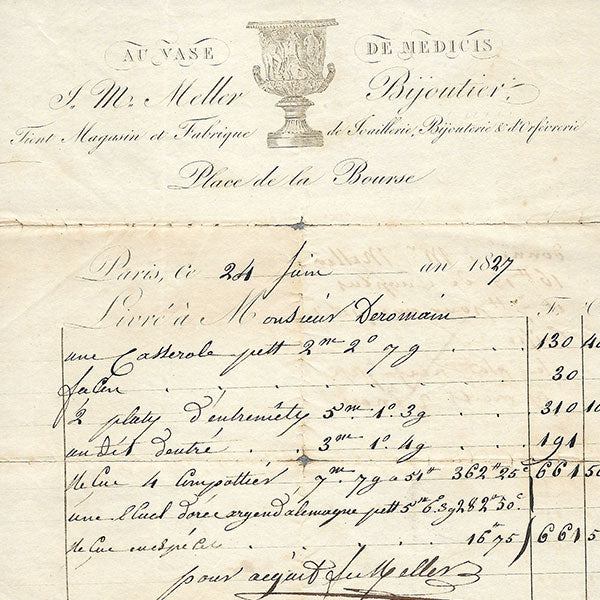 AU VASE DE MEDICIS
J. M. Meller Bijoutier
Tient Magasin et Fabrique de Joaillerie, Bijouterie & d'Orfévrerie
Place de la Bourse
Paris, ce 24 Juin an 1827
Livré à Monsieur Deromain Fr. C
une Casserole pest 2m 2o 7g 130 40
facon 30
2 platy d'entremety 5m 1o 3g 310 10
un dit d'entré 3m 1o 4g 191
Recue 4 Compottier 7m 7g a 51tt 362tt 25c 661 50
une dorée argent d'alemagne pest 5m 6o 3g 282tt 50c
Recue en espèces 16tt 75 661 5
pour acquit J M Meller